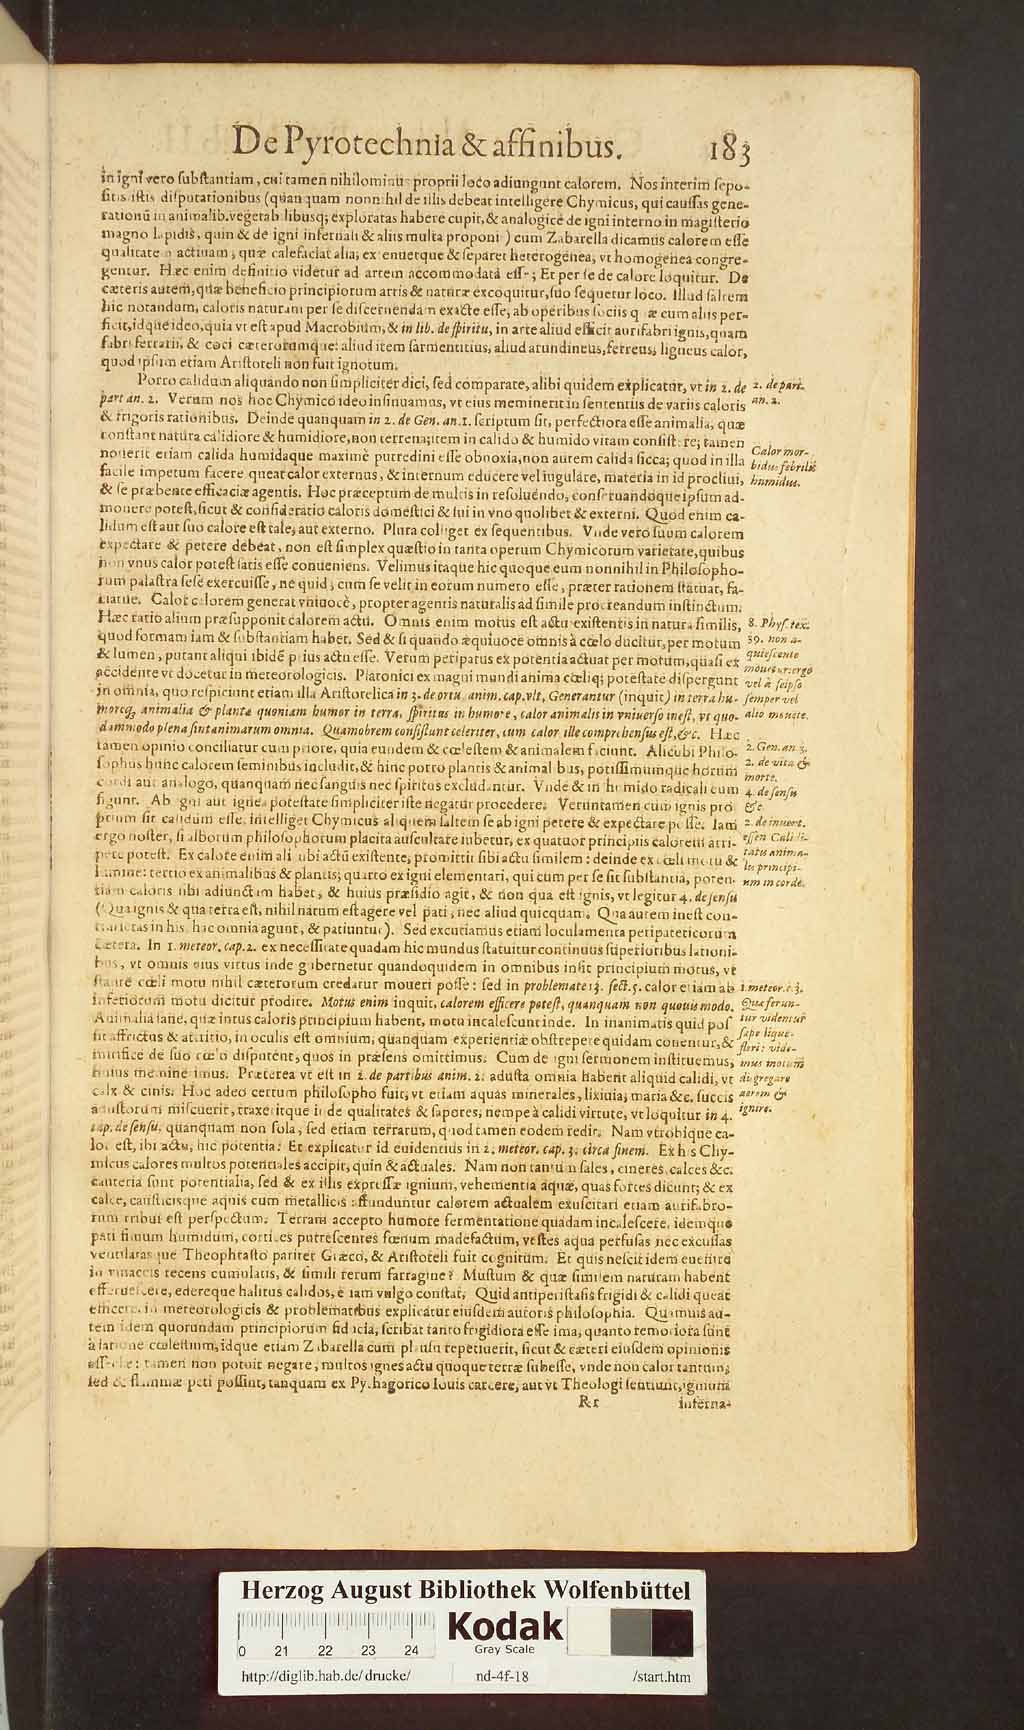 De Pyrotechnia & affinibus. 183
in igni vero substantiam, cui tamen nihilominus proprii loco adiungunt calorem. Nos interim sepo-
sitis istis disputationibus (quanquam nonnihil de illis debeat intelligere Chymicus, qui caussas gene-
rationū in animalib. vegetabilibusq; exploratas habere cupit, & analogicè de igni interno in magisterio
magno lapidis, quin & de igni infernali & aliis multa proponit) cum Zabarella dicamus calorem esse
qualitatem actiuam, quæ calefaciat alia; extenuetque & separet heterogenea, vt homogenea congre-
gentur. Hæc enim definitio videtur ad artem accommodata esse; Et per se de calore loquitur. De
cæteris autem, quæ beneficio principiorum artis & naturæ excoquitur, suo sequetur loco. Illud saltem
hic notandum, caloris naturam per se discernendam exacte esse, ab operibus sociis quæ cum aliis per-
ficit, idque ideo, quia vt est apud Macrobium, & in lib. de spiritu, in arte aliud efficit aurifabri ignis, quam
fabri ferrarii, & coci cæterorumque: aliud item sarmentitius, aliud arundineus, ferreus, ligneus calor,
quod ipsum etiam Aristoteli non fuit ignotum.
Porro calidum aliquando non simpliciter dici, sed comparate, alibi quidem explicatur, vt in 2. de
part an. 2. Verum nos hoc Chymico ideo insinuamus, vt eius meminerit in sententiis de variis caloris
& frigoris rationibus. Deinde quanquam in 2. de Gen. an. 1. scriptum sit, perfectiora esse animalia, quæ
constant natura calidiore & humidiore, non terrena; item in calido & humido vitam consistere; tamen
nouerit etiam calida humidaque maximè putredini esse obnoxia, non autem calida sicca; quod in illa
facile impetum facere queat calor externus, & internum educere vel iugulare, materia in id procliui,
& se præbente efficaciæ agentis. Hoc præceptum de multis in resoluendo, conseruandoque ipsum ad-
monere potest, sicut & consideratio caloris domestici & sui in vno quolibet & externi. Quod enim ca-
lidum est aut suo calore est tale, aut externo. Plura colliget ex sequentibus. Vnde vero suum calorem
expectare & petere debeat, non est simplex quæstio in tanta operum Chymicorum varietate, quibus
non vnus calor potest satis esse conueniens. Velimus itaque hic quoque eum nonnihil in Philosopho-
rum palæstra sese exercuisse, ne quid, cum se velit in eorum numero esse, præter rationem statuat, fa-
ciatue. Calor calorem generat vniuocè, propter agentis naturalis ad simile procreandum instinctum.
Hæc ratio alium præsupponit calorem actu. Omnis enim motus est actu existentis in natura similis,
quod formam iam & substantiam habet. Sed & si quando æquiuoce omnis à cœlo ducitur, per motum
& lumen, putant aliqui ibidē prius actu esse. Verum peripatus ex potentia actuat per motum, quasi ex
accidente vt docetur in meteorologicis. Platonici ex magni mundi anima cœliq; potestate dispergunt
in omnia, quo respiciunt etiam illa Aristotelica in 3. de ortu anim. cap. vlt, Generantur (inquit) in terra hu-
moreq; animalia & plantæ quoniam humor in terra, spiritus in humore, calor animalis in vniuerso inest, vt quo-
dammodo plena sint animarum omnia. Quamobrem consistunt celeriter, cum calor ille comprehensus est, &c. Hæc
tamen opinio conciliatur cum priore, quia eundem & cœlestem & animalem faciunt. Alicubi Philo-
sophus hunc calorem seminibus includit, & hinc porro plantis & animalibus, potissimumque horum
cordi aut analogo, quanquam nec sanguis nec spiritus excludantur. Vnde & in humido radicali eum
figunt. Ab igni aut ignea potestate simpliciter iste negatur procedere. Veruntamen cum ignis pro
prium sit calidum esse, intelliget Chymicus aliquem saltem se ab igni petere & expectare posse. Iam
ergo noster, si alborum philosophorum placita auscultare iubetur, ex quatuor principiis calorem arri-
pere potest. Ex calore enim alicubi actu existente, promittit sibi actu similem: deinde ex cœli motu &
lumine: tertio ex animalibus & plantis; quarto ex igni elementari, qui cum per se sit substantia, poten-
tiam caloris tibi adiunctam habet, & huius præsidio agit, & non qua est ignis, vt legitur 4. de sensu
(Qua ignis & qua terra est, nihil natum est agere vel pati, nec aliud quicquam. Qua autem inest con-
trarietas in his, hac omnia agunt, & patiuntur). Sed excutiamus etiam loculamenta peripateticorum
cætera. In 1. meteor. cap. 2. ex necessitate quadam hic mundus statuitur continuus superioribus lationi-
bus, vt omnis eius virtus inde gubernetur quandoquidem in omnibus insit principium motus, vt
stante cœli motu nihil cæterorum credatur moueri posse: sed in problemate 13. sect. 5. calor etiam ab
inferiorum motu dicitur prodire. Motus enim inquit, calorem efficere potest, quanquam non quouis modo.
Animalia sane, quæ intus caloris principium habent, motu incalescunt inde. In inanimatis quid pos
sit affrictus & attritio, in oculis est omnium, quanquam experientiæ obstrepere quidam conentur, &
mirifice de suo cœlo disputent, quos in præsens omittimus. Cum de igni sermonem instituemus,
huius meminerimus. Præterea vt est in 2. de partibus anim. 2. adusta omnia habent aliquid calidi, vt
calx & cinis. Hoc adeo certum philosopho fuit, vt etiam aquas minerales, lixiuia, maria &c. succis
adustorum miscuerit, traxeritque inde qualitates & sapores, nempe à calidi virtute, vt loquitur in 4.
cap. de sensu, quanquam non sola, sed etiam terrarum, quod tamen eodem redit. Nam vtrobique ca-
lor est, ibi actu, hic potentia: Et explicatur id euidentius in 2. meteor. cap. 3. circa finem. Ex his Chy-
micus calores multos potentiales accipit, quin & actuales. Nam non tantum sales, cineres, calces &c.
cauteria sunt potentialia, sed & ex illis expressæ ignium, vehementia aquæ, quas fortes dicunt; & ex
calce, causticisque aquis cum metallicis affunduntur calorem actualem exuscitari etiam aurifabro-
rum tribui est perspectum. Terram accepto humore fermentatione quadam incalescere, idemque
pati fimum humidum, cortices putrescentes fœnum madefactum, vestes aqua perfusas nec excussas
ventilatasque Theophrasto pariter Græco, & Aristoteli fuit cognitum. Et quis nescit idem euenire
in vinaceis recens cumulatis, & simili rerum farragine? Mustum & quæ similem naturam habent
efferuescere, edereque halitus calidos, etiam vulgo constat. Quid antiperistasis frigidi & calidi queat
efficere, in meteorologicis & problematibus explicatur eiusdem autoris philosophia. Quamuis au-
tem idem quorundam principiorum fiducia, scribat tanto frigidiora esse ima, quanto remotiora sunt
à latione cœlestium, idque etiam Zabarella cum plausu repetiuerit, sicut & cæteri eiusdem opinionis
assectæ: tamen non potuit negare, multos ignes actu quoque terræ subesse, vnde non calor tantum,
sed & flammæ peti possint, tanquam ex Pythagorico Iouis carcere, aut vt Theologi sentiunt, ignium
Rr inferna-
2. de part.
an. 2.
Calor mor-
bidus febrilis
humidus.
8. Phys. tex.
39. non a-
quiescente
mouetur: ergo
vel à seipso
semper vel
alio mouete.
2. Gen. an. 3.
2. de vita &
morte.
4. de sensu
&c.
2. de inuent.
essen Calidi-
tatis anima-
lis principi-
um in corde.
1. meteor. c. 3.
Quæ ferun-
tur videntur
sæpe lique-
fieri: vide-
mus motum
disgregare
aerem &
ignire.
Herzog August Bibliothek Wolfenbüttel
0 21 22 23 24
Kodak
Gray Scale
http://diglib.hab.de/drucke/ nd-4f-18 /start.htm